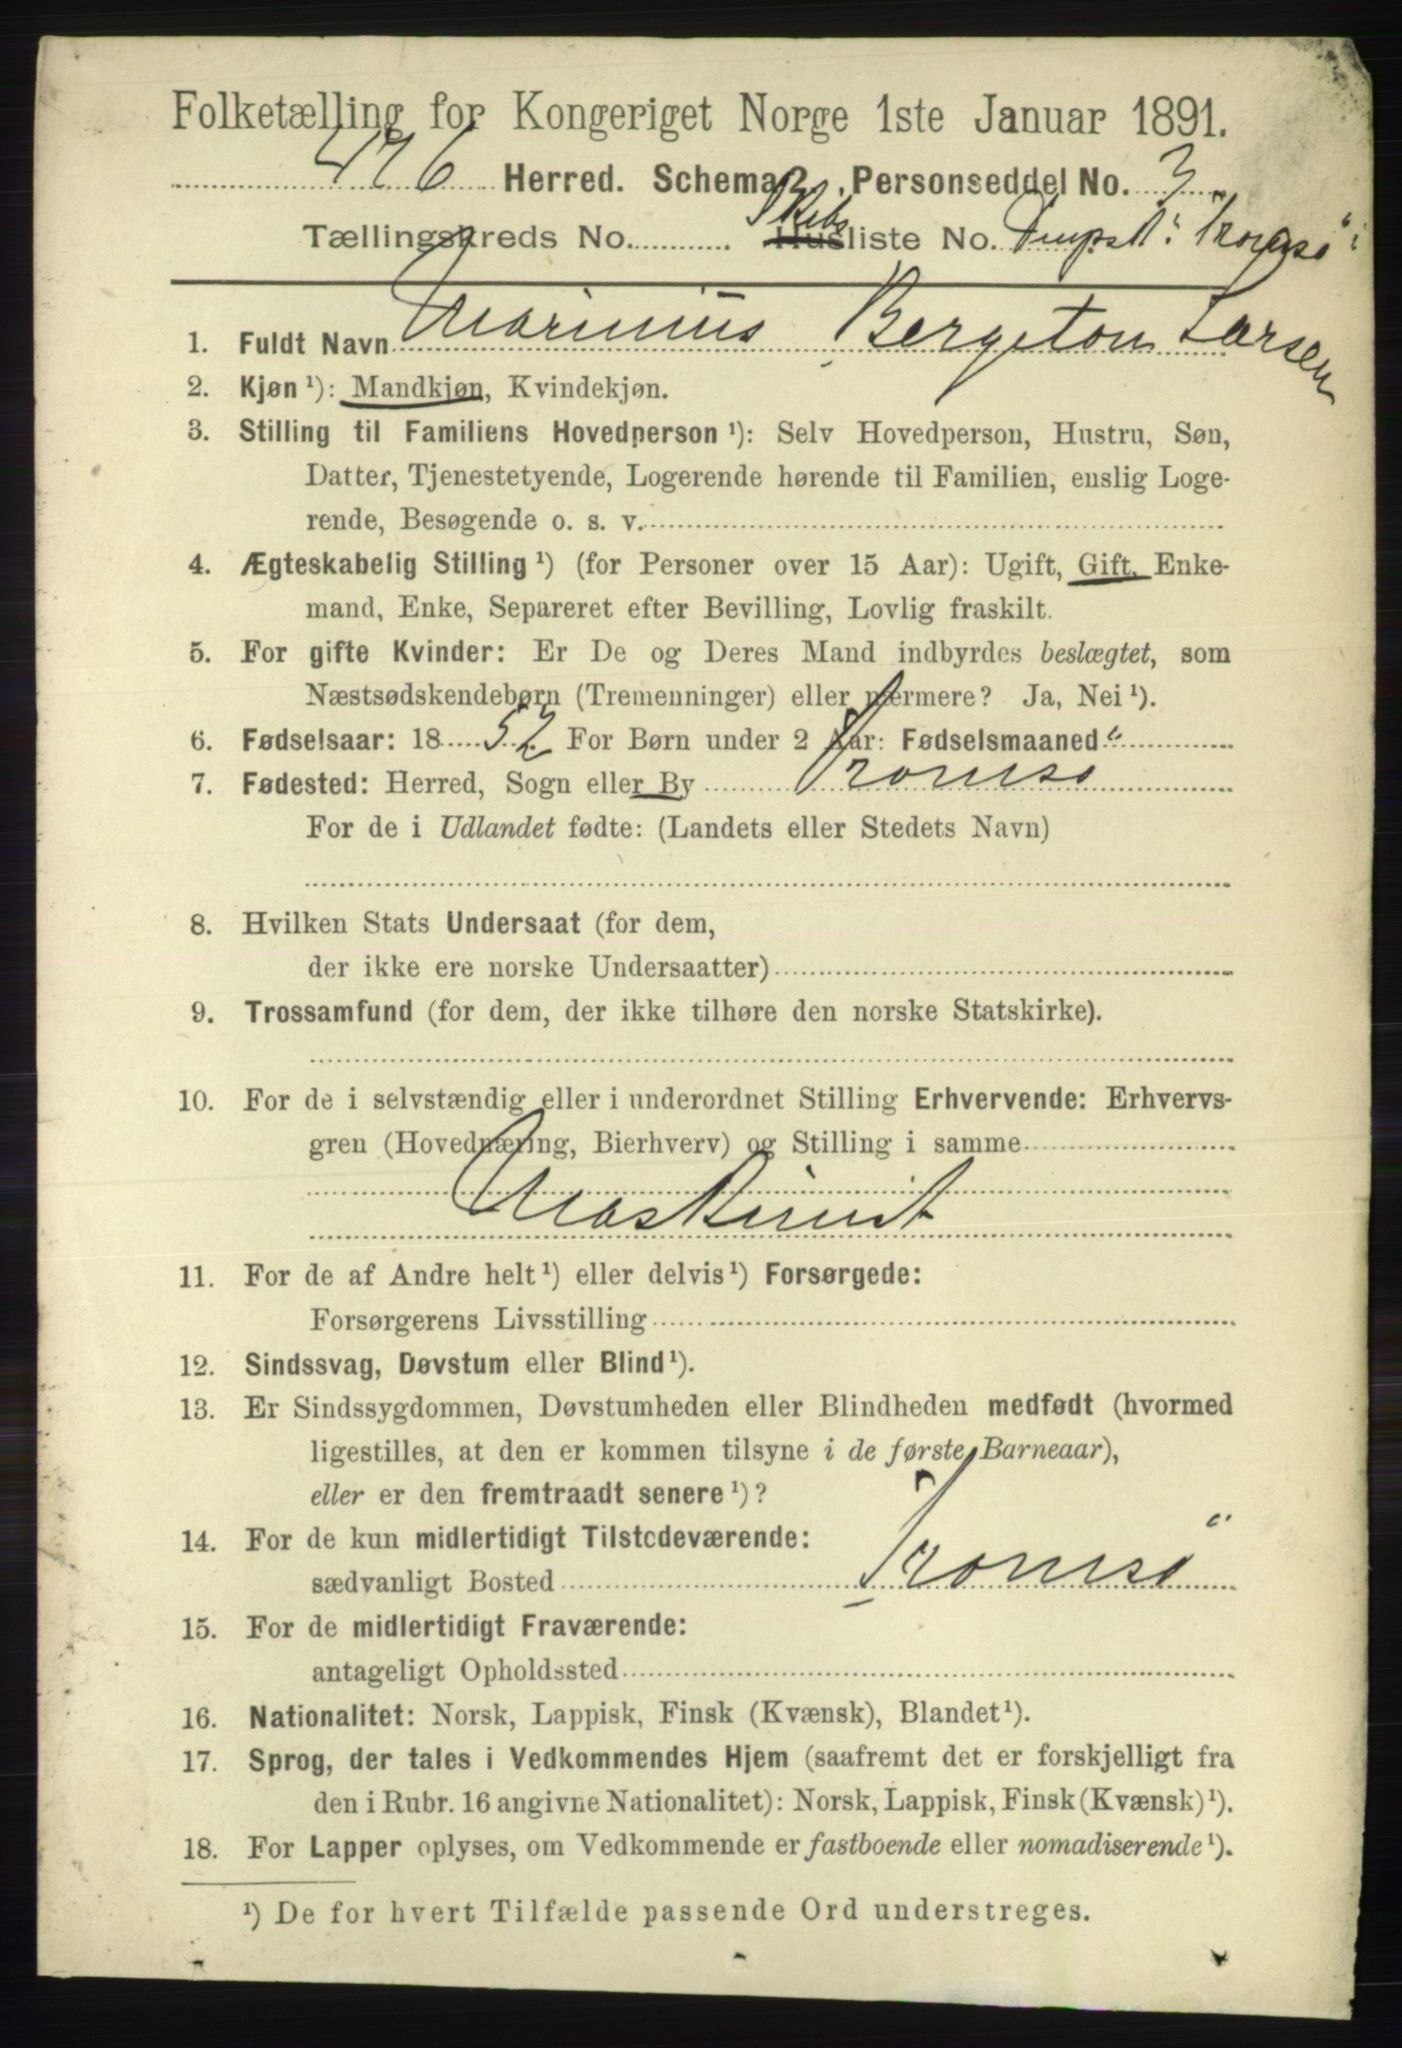 Folketælling for Kongeriget Norge 1ste Januar 1891.
Herred. Schema 2. Personseddel No. 3
Tællingskreds No. Skibsliste No. Tromsø
1. Fuldt Navn Marinius Bergeton Larsen
2. Kjøn ¹): Mandkjøn, Kvindekjøn.
3. Stilling til Familiens Hovedperson ¹): Selv Hovedperson, Hustru, Søn,
Datter, Tjenestetyende, Logerende hørende til Familien, enslig Loge-
rende, Besøgende o. s. v.
4. Ægteskabelig Stilling ¹) (for Personer over 15 Aar): Ugift, Gift, Enke-
mand, Enke, Separeret efter Bevilling, Lovlig fraskilt.
5. For gifte Kvinder: Er De og Deres Mand indbyrdes beslægtet, som
Næstsødskendebørn (Tremenninger) eller nærmere? Ja, Nei ¹).
6. Fødselsaar: 1852. For Børn under 2 Aar: Fødselsmaaned
7. Fødested: Herred, Sogn eller By Tromsø
For de i Udlandet fødte: (Landets eller Stedets Navn)
8. Hvilken Stats Undersaat (for dem,
der ikke ere norske Undersaatter)
9. Trossamfund (for dem, der ikke tilhøre den norske Statskirke).
10. For de i selvstændig eller i underordnet Stilling Erhvervende: Erhvervs-
gren (Hovednæring, Bierhverv) og Stilling i samme
Maskinist
11. For de af Andre helt ¹) eller delvis ¹) Forsørgede:
Forsørgerens Livsstilling
12. Sindssvag, Døvstum eller Blind ¹).
13. Er Sindssygdommen, Døvstumheden eller Blindheden medfødt (hvormed
ligestilles, at den er kommen tilsyne i de første Barneaar),
eller er den fremtraadt senere ¹)?
14. For de kun midlertidigt Tilstedeværende:
sædvanligt Bosted Tromsø
15. For de midlertidigt Fraværende:
antageligt Opholdssted
16. Nationalitet: Norsk, Lappisk, Finsk (Kvænsk), Blandet ¹).
17. Sprog, der tales i Vedkommendes Hjem (saafremt det er forskjelligt fra
den i Rubr. 16 angivne Nationalitet): Norsk, Lappisk, Finsk (Kvænsk) ¹).
18. For Lapper oplyses, om Vedkommende er fastboende eller nomadiserende ¹).
¹) De for hvert Tilfælde passende Ord understreges.